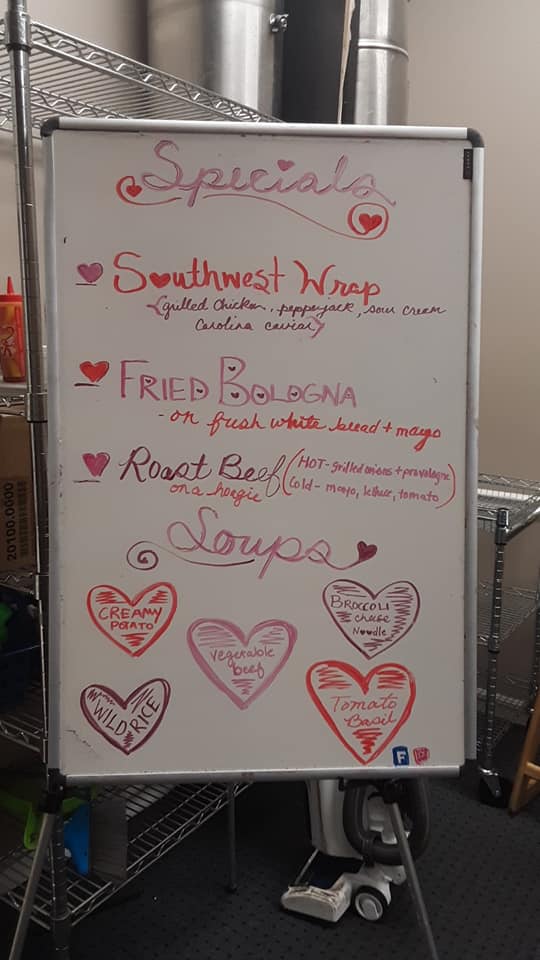 Specials
Southwest Wrap
(grilled chicken, pepperjack, sour cream
Carolina caviar)
FRIED BOLOGNA
- on fresh white bread + mayo
Roast Beef
on a hoagie
(HOT - grilled onions + provologne
Cold - mayo, lettuce, tomato)
Soups
CREAMY
POTATO
BROCCOLI
cheese
Noodle
vegetable
beef
WILD RICE
Tomato
Basil
F
20100.0000